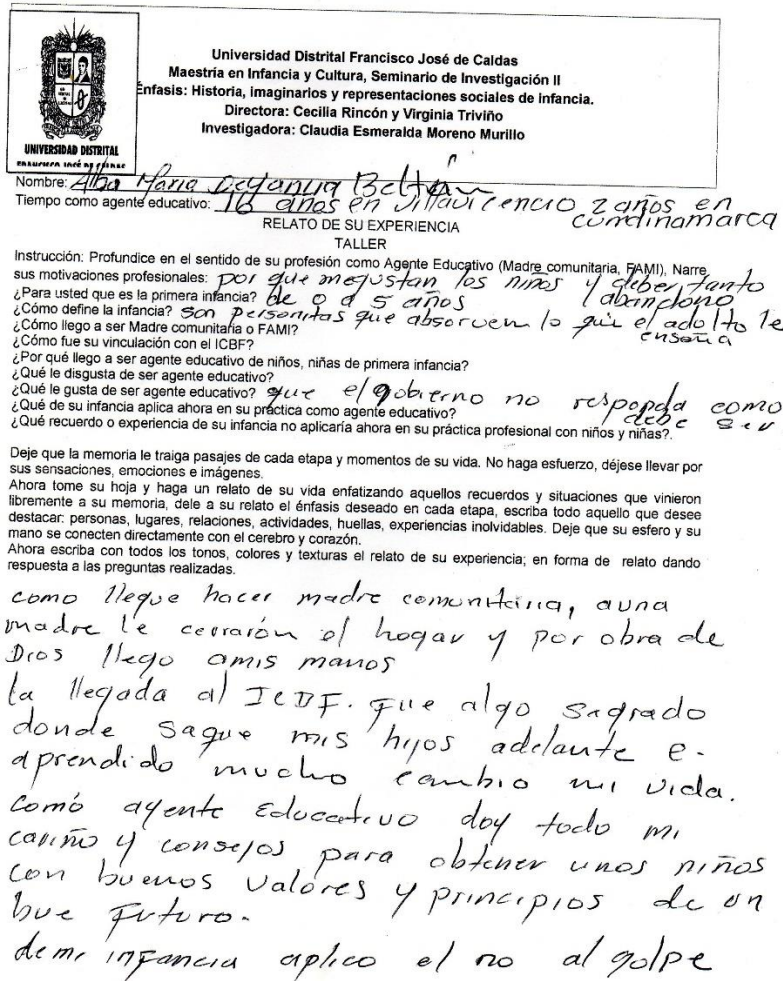 Universidad Distrital Francisco José de Caldas
Maestría en Infancia y Cultura, Seminario de Investigación II
Énfasis: Historia, imaginarios y representaciones sociales de infancia.
Directora: Cecilia Rincón y Virginia Triviño
Investigadora: Claudia Esmeralda Moreno Murillo
UNIVERSIDAD DISTRITAL
FRANCISCO JOSÉ DE CALDAS
Nombre: Alba Maria Beltrán
Tiempo como agente educativo: 16 años en Villavicencio 2 años en
cundinamarca
RELATO DE SU EXPERIENCIA
TALLER
Instrucción: Profundice en el sentido de su profesión como Agente Educativo (Madre comunitaria, FAMI), Narre,
sus motivaciones profesionales: por que megustan los niños y deber tanto
abandono
¿Para usted que es la primera infancia? de 0 a 5 años
¿Cómo define la infancia? son personitas que absorven lo que el adolto le
enseña
¿Cómo llego a ser Madre comunitaria o FAMI?
¿Cómo fue su vinculación con el ICBF?
¿Por qué llego a ser agente educativo de niños, niñas de primera infancia?
¿Qué le disgusta de ser agente educativo?
¿Qué le gusta de ser agente educativo? que el gobierno no responda como
debe ser
¿Qué de su infancia aplica ahora en su práctica como agente educativo?
¿Qué recuerdo o experiencia de su infancia no aplicaría ahora en su práctica profesional con niños y niñas?.
Deje que la memoria le traiga pasajes de cada etapa y momentos de su vida. No haga esfuerzo, déjese llevar por
sus sensaciones, emociones e imágenes.
Ahora tome su hoja y haga un relato de su vida enfatizando aquellos recuerdos y situaciones que vinieron
libremente a su memoria, dele a su relato el énfasis deseado en cada etapa, escriba todo aquello que desee
destacar: personas, lugares, relaciones, actividades, huellas, experiencias inolvidables. Deje que su esfero y su
mano se conecten directamente con el cerebro y corazón.
Ahora escriba con todos los tonos, colores y texturas el relato de su experiencia; en forma de relato dando
respuesta a las preguntas realizadas.
como llegue hacer madre comunitaria, auna
madre le cerrarón el hogar y por obra de
Dios llego amis manos
la llegada al ICBF. fue algo sagrado
donde saque mis hijos adelante e-
aprendido mucho cambio mi vida.
comó agente Educativo doy todo mi
cariño y consejos para obtener unos niños
con buenos valores y principios de un
bue futuro.
demi infancia aplico el no al golpe